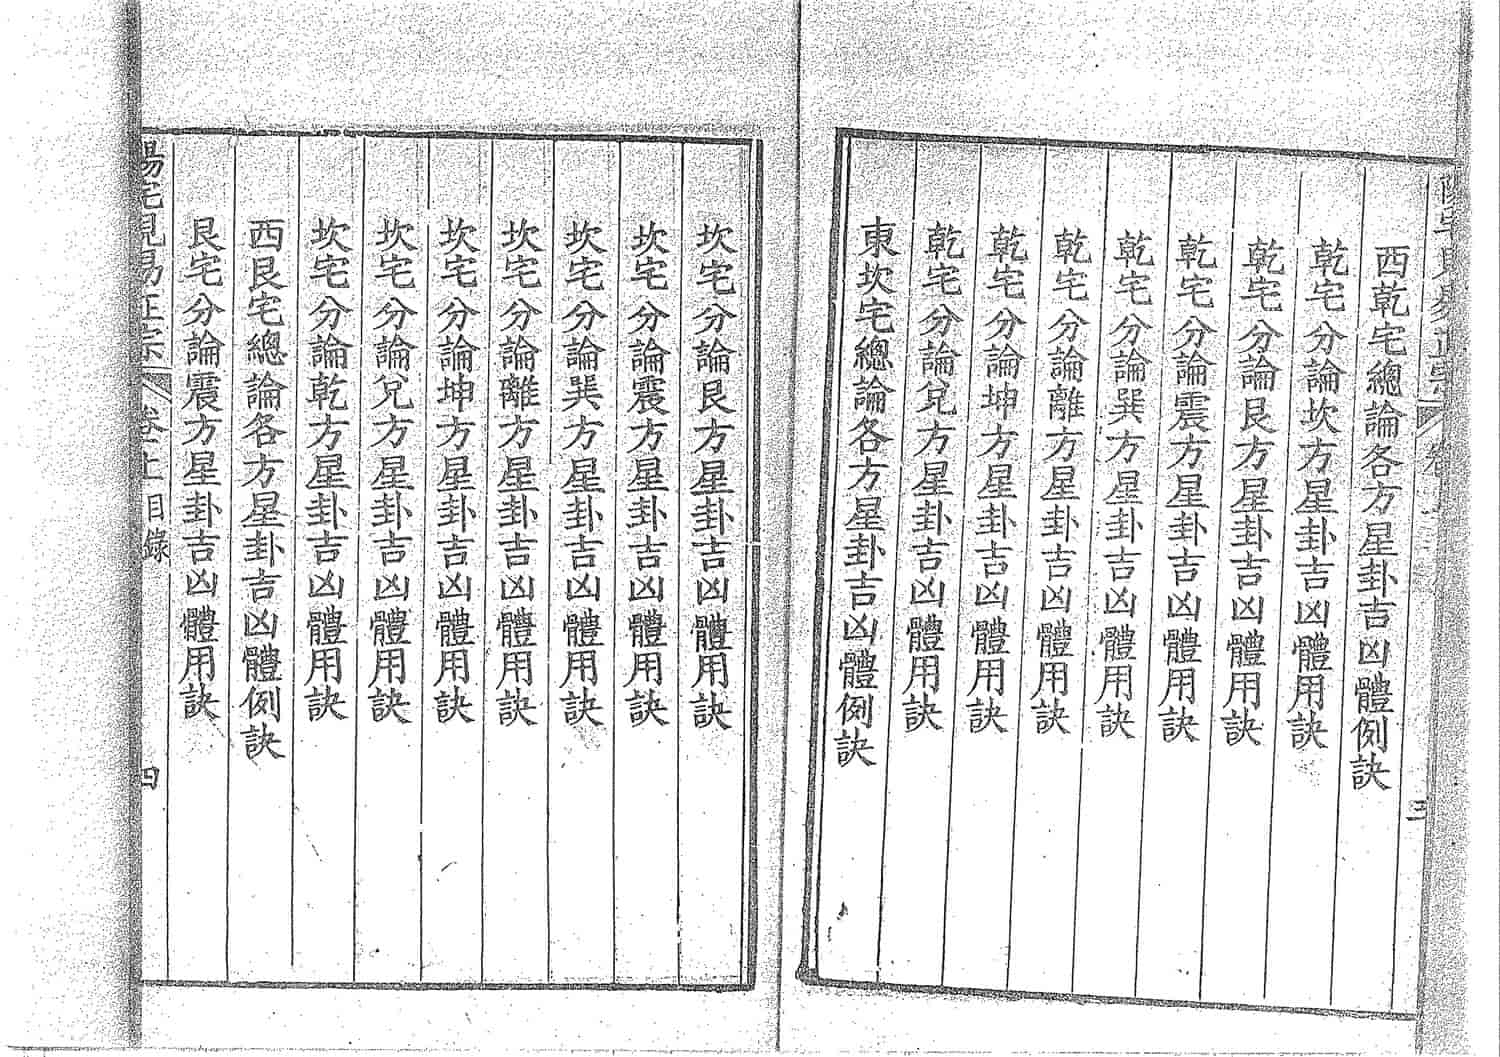 西乾宅總論各方星卦吉凶體例訣
乾宅分論坎方星卦吉凶體用訣
乾宅分論艮方星卦吉凶體用訣
乾宅分論震方星卦吉凶體用訣
乾宅分論巽方星卦吉凶體用訣
乾宅分論離方星卦吉凶體用訣
乾宅分論坤方星卦吉凶體用訣
乾宅分論兌方星卦吉凶體用訣
東坎宅總論各方星卦吉凶體例訣
坎宅分論艮方星卦吉凶體用訣
坎宅分論震方星卦吉凶體用訣
坎宅分論巽方星卦吉凶體用訣
坎宅分論離方星卦吉凶體用訣
坎宅分論坤方星卦吉凶體用訣
坎宅分論兌方星卦吉凶體用訣
坎宅分論乾方星卦吉凶體用訣
西艮宅總論各方星卦吉凶體例訣
艮宅分論震方星卦吉凶體用訣
陽宅見易正宗 卷上 目錄 四